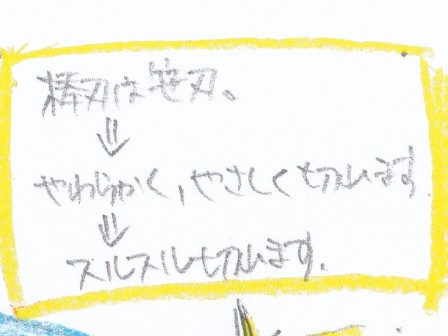 横刃は笹刃。
⇓
やわらかく,やさしく切れます
⇓
スルスル切れます.